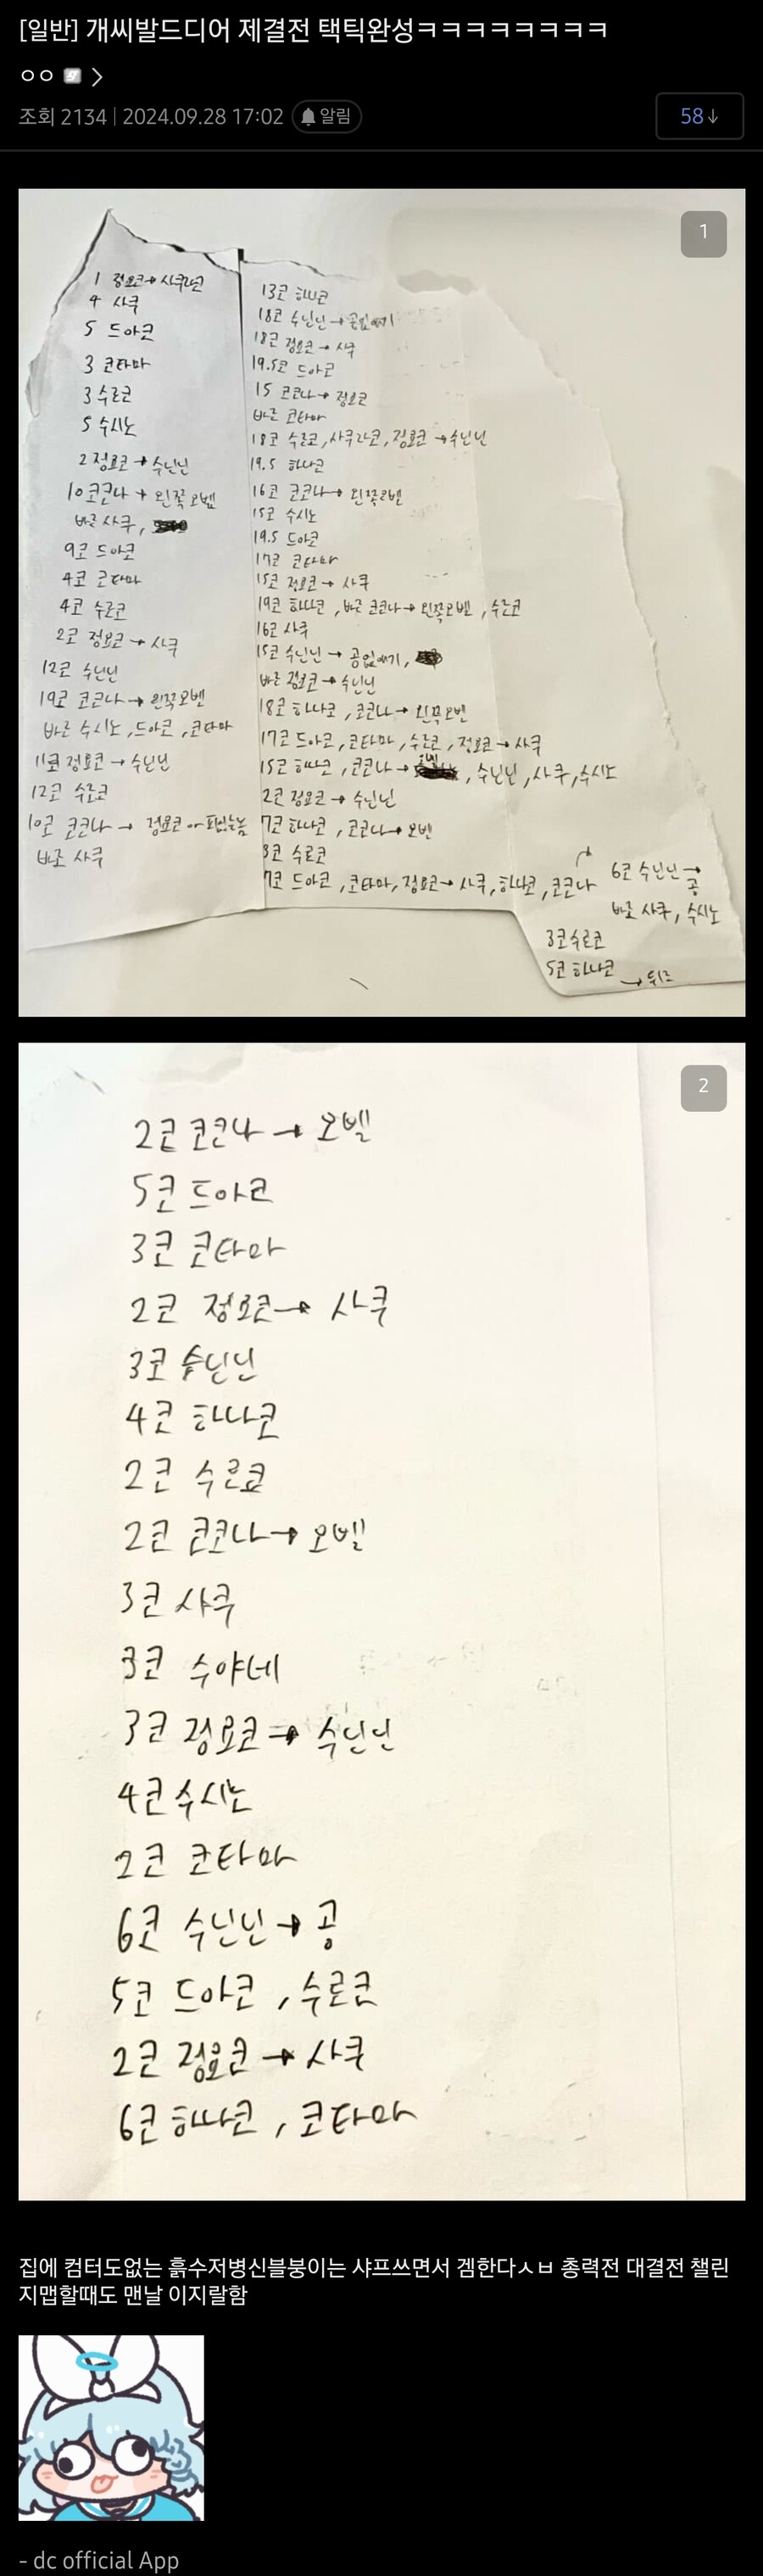 [일반] 개씨발드디어 제결전 택틱완성ㅋㅋㅋㅋㅋㅋㅋㅋ
ㅇㅇ
조회 2134 | 2024.09.28 17:02 알림
58↓
1
1 정요코→사쿠라코
4 사쿠
5 드아코
3 코타마
3 수르코
5 수시노
2 정요코→수닌닌
10코코나→왼쪽오벨
바로 사쿠,
9코 드아코
4코 코타마
4코 수르코
2코 정요코→사쿠
12코 수닌닌
19코 코코나→왼쪽오벤
바로 수시노, 드아코, 코타마
11코 정요코→수닌닌
12코 수르코
10코 코코나→정요코 or 피없는놈
바로 사쿠
13코 하나코
18코 수닌닌→공없애기
18코 정요코→사쿠
19.5코 드아코
15 코코나→정요코
바로 코타마
18코 수르코, 사쿠라코, 정요코→수닌닌
19.5 하나코
16코 코코나→왼쪽오벨
15코 수시노
19.5 드아코
17코 코타마
15코 정요코→사쿠
19코 하나코, 바로 코코나→왼쪽오벨, 수르코
16코 사쿠
15코 수닌닌→공없애기,
바로 정요코→수닌닌
18코 하나코, 코코나→왼쪽오벤
17코 드아코, 코타마, 수르코, 정요코→사쿠
15코 하나코, 코코나→오벨, 수닌닌, 사쿠, 수시노
2코 정요코→수닌닌
7코 하나코, 코코나→오벤
3코 수르코
7코 드아코, 코타마, 정요코→사쿠, 하나코, 코코나
6코 수닌닌→공
바로 사쿠, 수시노
3코 수르코
5코 하나코
→뒤로
2
2코 코코나→오벨
5코 드아코
3코 코타마
2코 정요코→사쿠
3코 수닌닌
4코 하나코
2코 수르코
2코 코코나→오벨
3코 사쿠
3코 수야네
3코 정요코→수닌닌
4코 수시노
2코 코타마
6코 수닌닌→공
5코 드아코, 수르코
2코 정요코→사쿠
6코 하나코, 코타마
집에 컴터도없는 흙수저병신블붕이는 샤프쓰면서 겜한다ㅅㅂ 총력전 대결전 챌린
지맵할때도 맨날 이지랄함
- dc official App